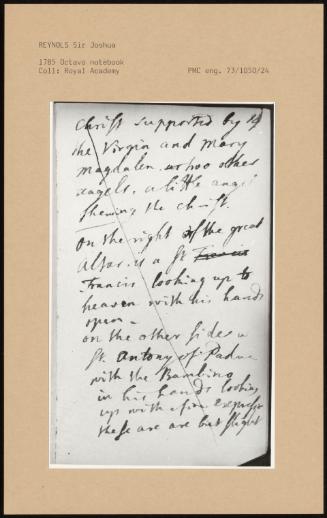 REYNOLS Sir Joshua
1785 Octavo notebook
Coll: Royal Academy
PMC eng. 73/1050/24
Christ supported by
the Virgin and Mary
Magdalen. other
Angels, a little angel
shewing the Christ.
on the right of the great
Altar is a St Francis
Francis looking up to
heaven with his hands
open -
on the other side a
St. Antony of Padua
with the Bambino
in his hands looking
up with fine Expression
these are are but slight